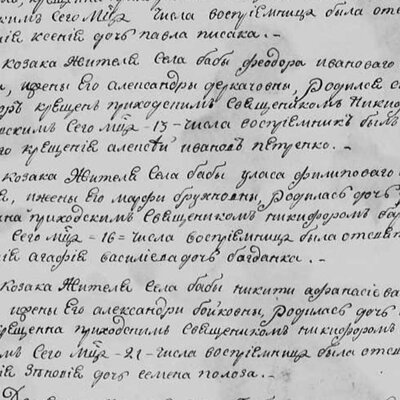 скимъ Сего Мца числа воспрїемница была отс
нїя ксенїя дочь павла писака. –
козака Жителя Села бабы феодора ивановаго
и жены Его александры деркачовны, Родился
крещенъ приходскимъ Священикомъ Никифо
рскимъ Сего Мца – 13 – числа воспрїемникъ былъ
го крещенїя алексѣй ивановъ петренко. –
козака Жителя Села бабы уласа филиповаго
и жены Его марфи бружновны, Родилась дочь
на приходскимъ Священикомъ никифоромъ ба
Сего Мца – 16 = числа воспрїемница была отсвят
нїя агафїя василїева дочь багданка. –
козака Жителя Села бабы никити афанасїева
и жены Его александри бойковны, Родилась дочь
крещенна приходскимъ Священикомъ никифоромъ
мъ Сего Мца – 21 – числа воспрїемница была отс
нїя Зѣновїя дочь семена полоза. –